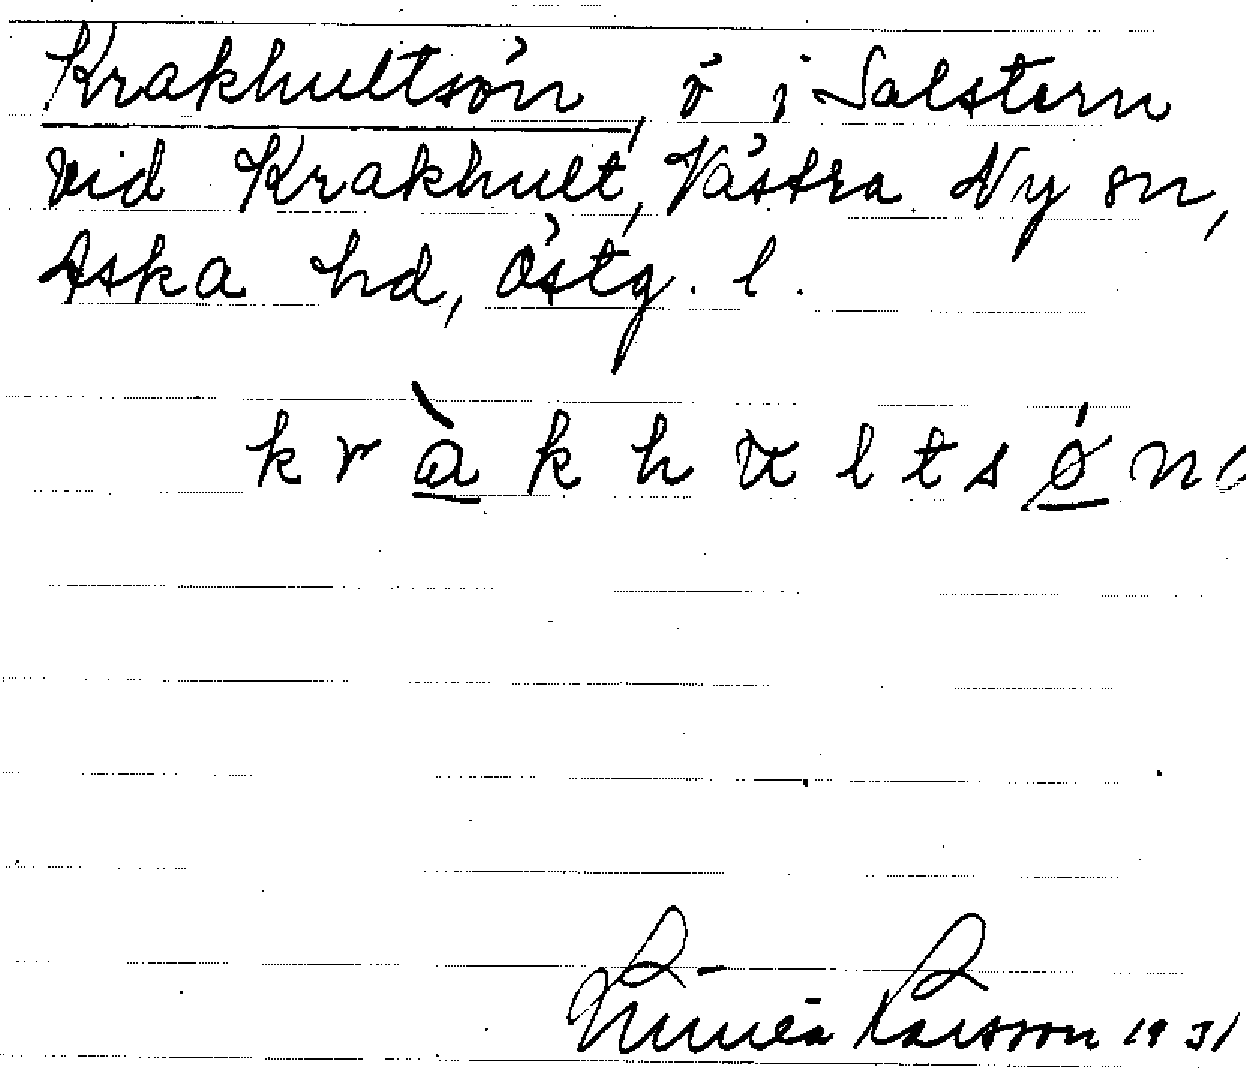 Krakhultsön, ö i Salstern
vid Krakhult, Västra Ny sn,
Aska hd, Östg. l.
k r à k h u l t s ǿ n
Linnéa Larsson 1931